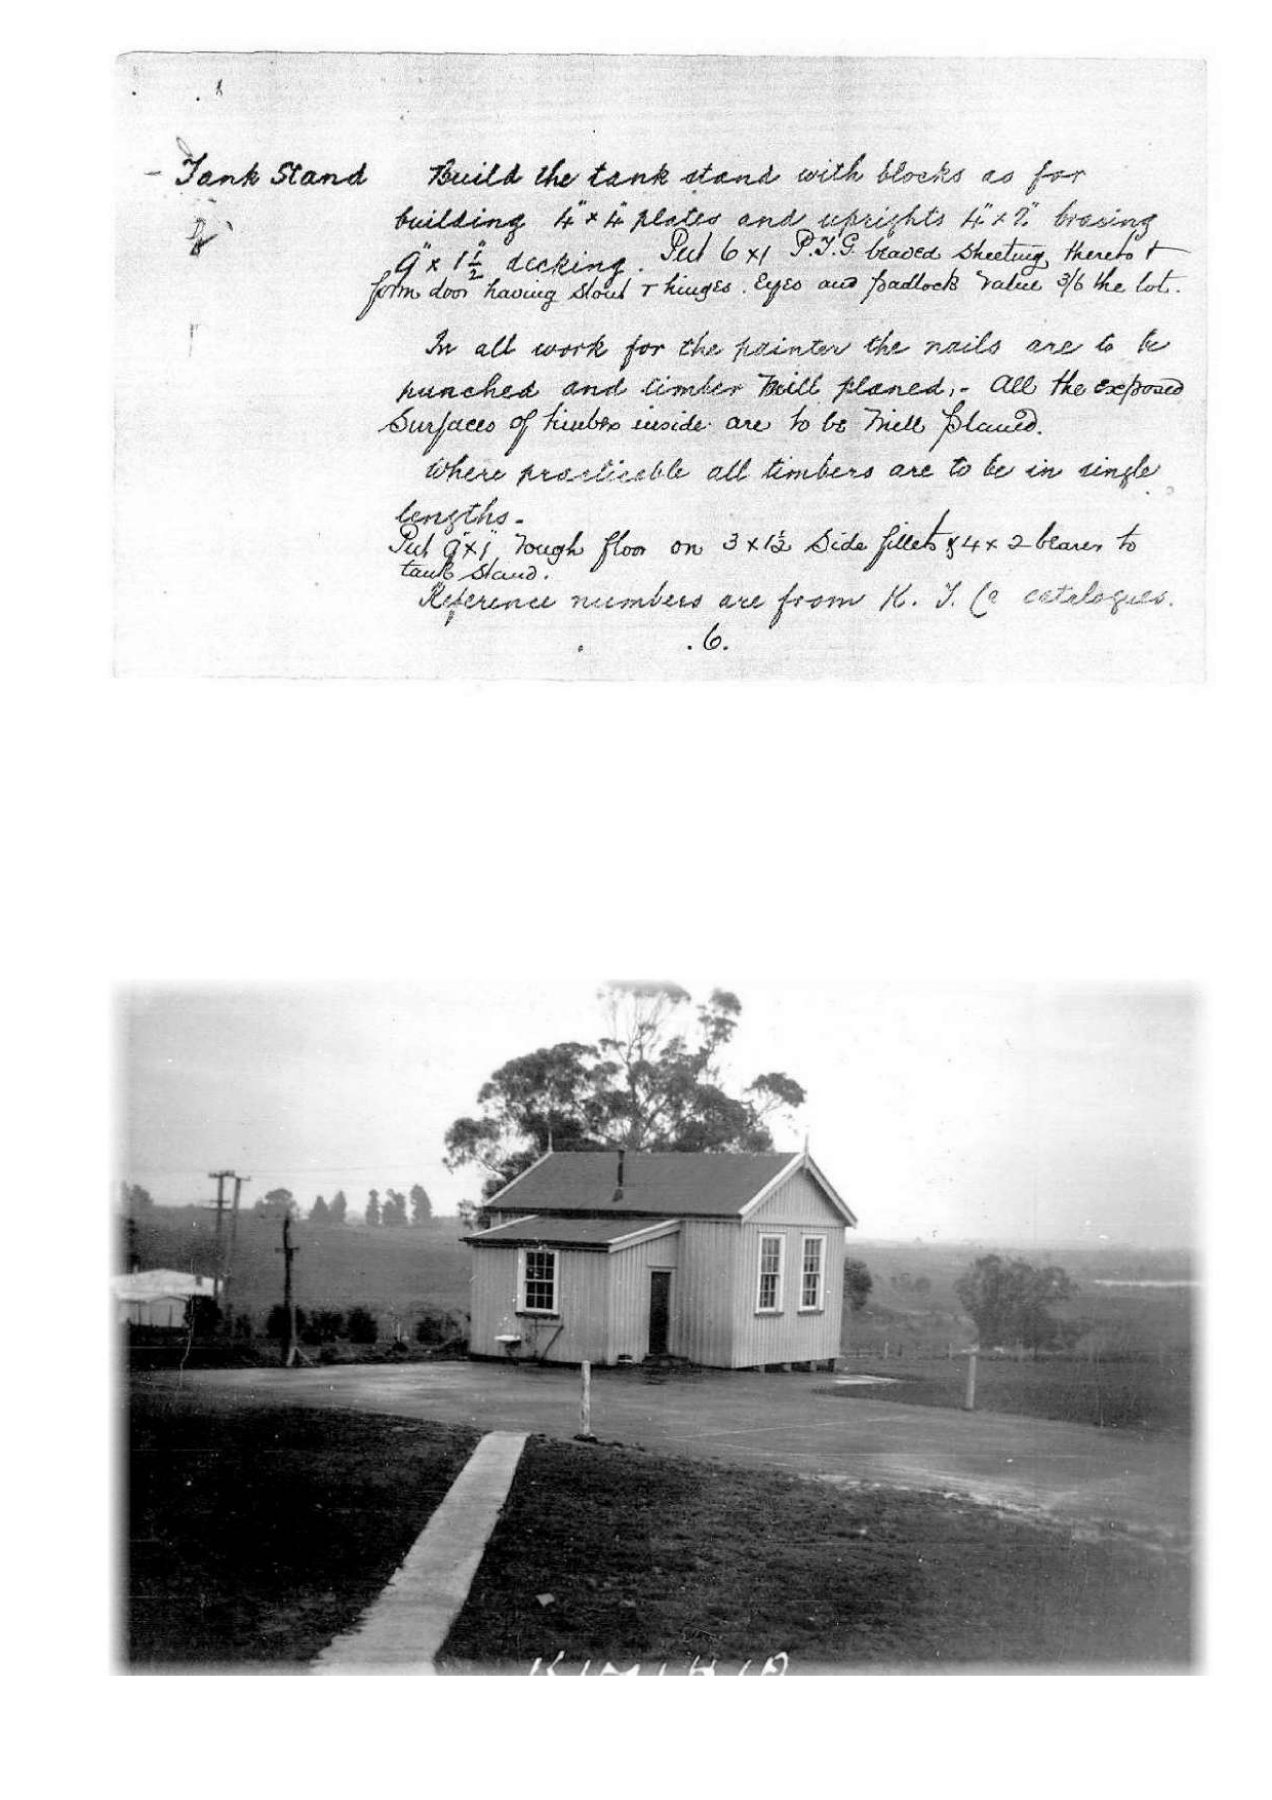 - Tank Stand Build the tank stand with blocks as for
building 4" x 4" plates and uprights 4" x 2" brasing
9" x 1 1/2" decking. Put 6 x 1 P.T.G. beaded sheeting thereto &
form door having stout T hinges. Eyes and padlock value 3/6 the lot.
In all work for the painter the nails are to be
punched and timber mill planed,- All the exposed
Surfaces of timber inside are to be Mill planed.
Where practicable all timbers are to be in single
lengths.-
Put 9" x 1" rough floor on 3 x 1 1/2 Side fillets & 4 x 2 bearer to
tank stand.
Reference numbers are from K. T. Co catalogues.
.6.